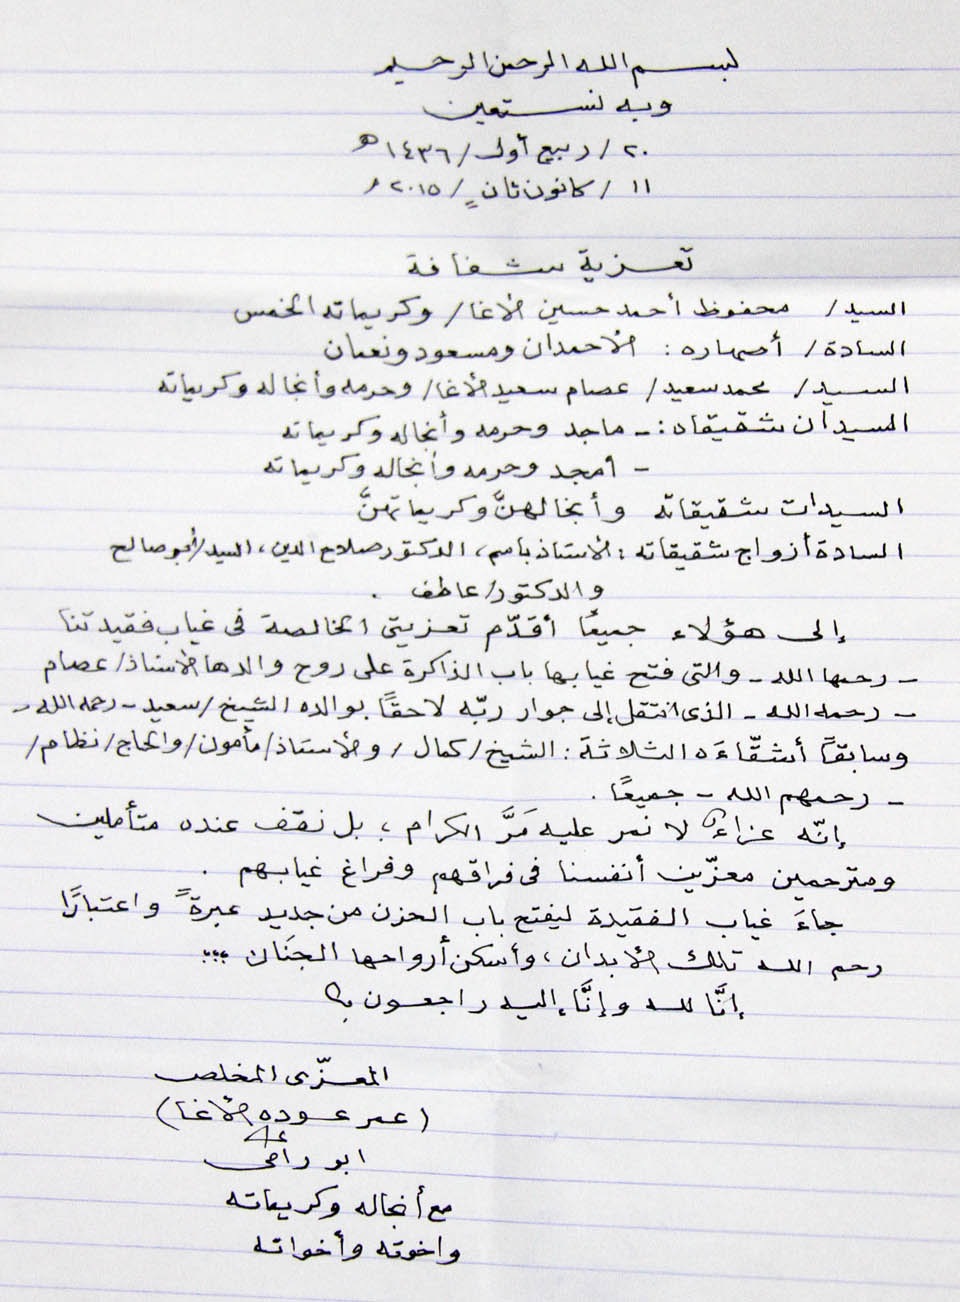 بسم الله الرحمن الرحيم
وبه نستعين
٢٠ / ربيع أول / ١٤٣٦ هـ
١١ / كانون ثانٍ / ٢٠١٥ م
تعزية شفافة
السيد / محفوظ أحمد حسين الأغا / وكريماته الخمس
السادة / أصهاره : الأحمدان ومسعود ونعمان
السيد / محمد سعيد / عصام سعيد الأغا / وحرمه وأنجاله وكريماته
السيدان شقيقاه : - ماجد وحرمه وأنجاله وكريماته
- أمجد وحرمه وأنجاله وكريماته
السيدات شقيقاته وأنجالهنَّ وكريماتهنَّ
السادة أزواج شقيقاته : الأستاذ باسم، الدكتور صلاح الدين، السيد / أبو صالح
والدكتور / عاطف .
إلى هؤلاء جميعًا أقدّم تعزيتي الخالصة في غياب فقيدتنا
- رحمها الله - والتي فتح غيابها باب الذاكرة على روح والدها الأستاذ / عصام
- رحمه الله - الذي انتقل إلى جوار ربّه لاحقًا بوالده الشيخ / سعيد - رحمه الله -
وسابقًا أشقّاءَه الثلاثة : الشيخ / كمال / والأستاذ / مأمون / والحاج / نظام /
- رحمهم الله - جميعًا .
إنّه عزاءٌ لا نمر عليه مَرَّ الكرام ، بل نقف عنده متأملين
ومترحمين معزّين أنفسنا في فراقهم وفراغ غيابهم .
جاءَ غياب الفقيدة ليفتح باب الحزن من جديد عبرةً واعتبارًا
رحم الله تلك الأبدان ، وأسكن أرواحها الجنَان ...
إنَّا لله وإنَّا إليه راجعون
المعزّي المخلص
( عمر عوده الأغا )
ابو رامي
مع أنجاله وكريماته
واخوته وأخواته